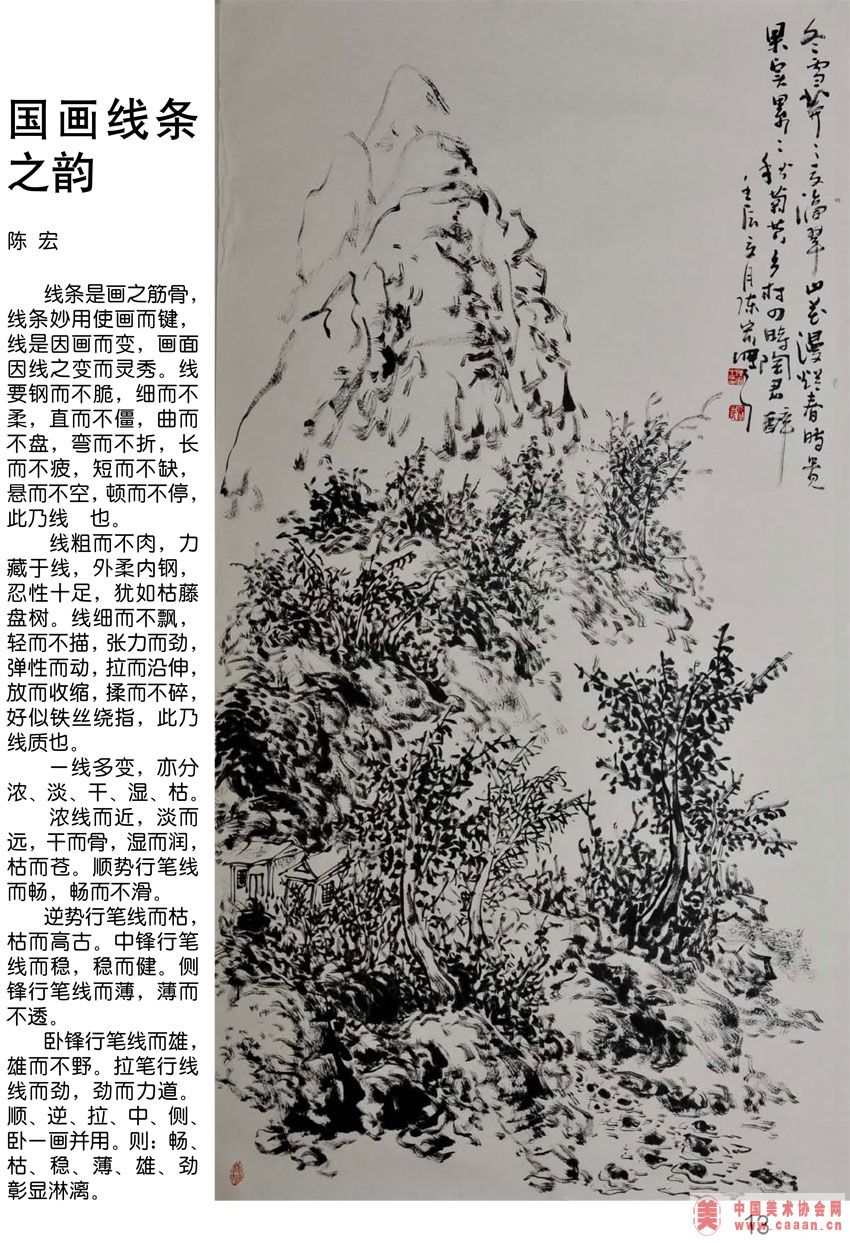 国画线条
之韵
陈 宏
线条是画之筋骨，
线条妙用使画而键，
线是因画而变，画面
因线之变而灵秀。线
要钢而不脆，细而不
柔，直而不僵，曲而
不盘，弯而不折，长
而不疲，短而不缺，
悬而不空，顿而不停，
此乃线 也。
线粗而不肉，力
藏于线，外柔内钢，
忍性十足，犹如枯藤
盘树。线细而不飘，
轻而不描，张力而劲，
弹性而动，拉而沿伸，
放而收缩，揉而不碎，
好似铁丝绕指，此乃
线质也。
一线多变，亦分
浓、淡、干、湿、枯。
浓线而近，淡而
远，干而骨，湿而润，
枯而苍。顺势行笔线
而畅，畅而不滑。
逆势行笔线而枯，
枯而高古。中锋行笔
线而稳，稳而健。侧
锋行笔线而薄，薄而
不透。
卧锋行笔线而雄，
雄而不野。拉笔行线
线而劲，劲而力道。
顺、逆、拉、中、侧、
卧一画并用。则：畅、
枯、稳、薄、雄、劲
彰显淋漓。
冬雪 翠山花漫烂春時景
果实累〻秋菊黄乡村四時陶君醉
壬辰 月陈宏
13
美 中国美术协会网
www.caaan.cn